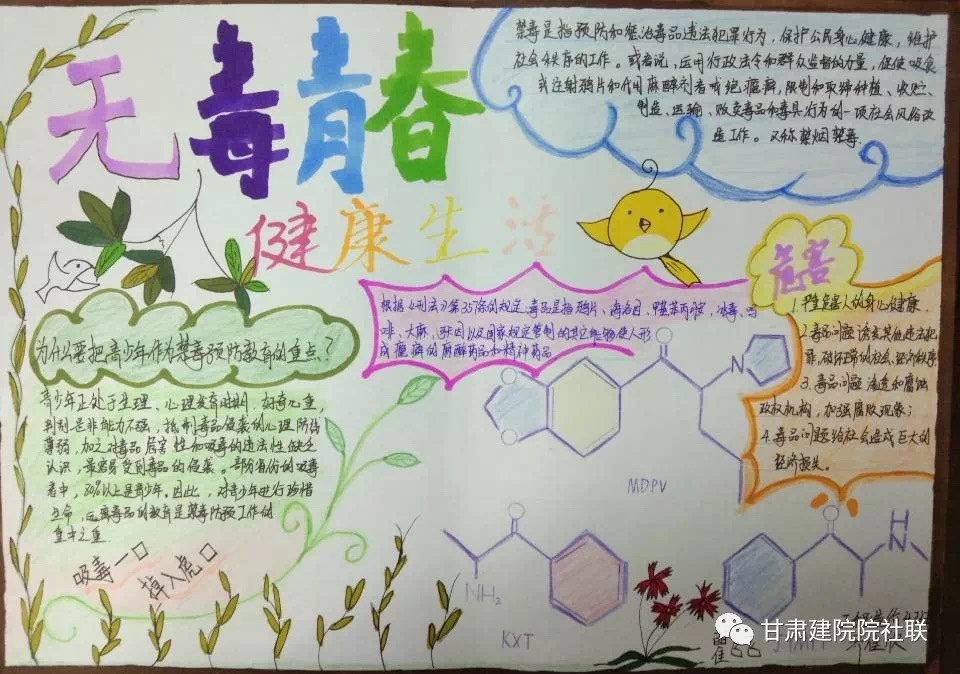 无毒青春
健康生活
禁毒是指预防和惩治毒品违法犯罪行为，保护公民身心健康，维护
社会秩序的工作。或者说，运用行政法令和群众监督的力量，促使吸食
或注射鸦片和代用麻醉剂者戒绝瘾癖，限制和取缔种植、收贮、
制造、运输、贩卖毒品和毒具行为的一项社会风俗改
造工作。又称禁烟禁毒.
危害
1.严重危害人的身心健康.
2.毒品问题诱发其他违法犯
罪，破坏正常的社会、经济秩序
3.毒品问题渗透和腐蚀
政权机构，加强腐败现象；
4.毒品问题给社会造成巨大的
经济损失。
根据《刑法》第357条的规定，毒品是指鸦片、海洛因、甲基苯丙胺，冰毒、吗
啡、大麻、可卡因以及国家规定管制的其它能够使人形
成瘾癖的麻醉药品和精神药品
为什么要把青少年作为禁毒预防教育的重点？
青少年正处于生理、心理发育时期，好奇心重，
判别是非能力不强，抵制毒品侵袭的心理防线
薄弱，加之对毒品危害性和吸毒的违法性缺乏
认识，最容易受到毒品的侵袭。
者中，以上是青少年。因此，对青少年进行珍惜
生命，远离毒品的教育是禁毒防预工作的
重中之重
吸毒一口
掉入虎口
O
O
O
N
MDPV
O
NH₂
KXT
O
H
N
甘肃建院院社联